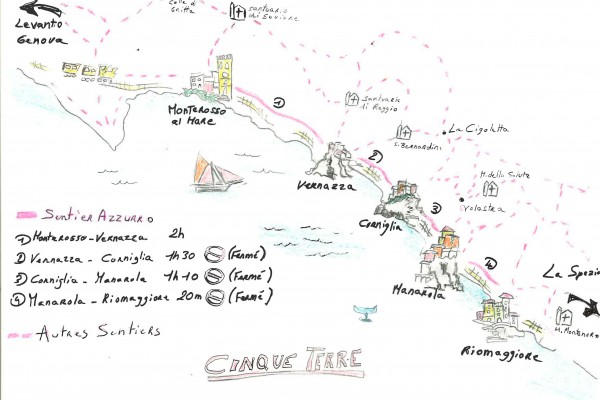 Levanto
Genova
Colle di
Gritta
Santuario
di Soviore
Monterosso
al Mare
①
Santuario
di Reggio
Vernazza
②
S. Bernardino
La Cigoletta
Corniglia
③
M. della Salute
Volastra
Manarola
④
La Spezia
M. Montenero
Riomaggiore
Sentier Azzurro
① Monterosso - Vernazza 2h
② Vernazza - Corniglia 1h30 (Fermé)
③ Corniglia - Manarola 1h10 (Fermé)
④ Manarola - Riomaggiore 20m (Fermé)
Autres Sentiers
CINQUE TERRE